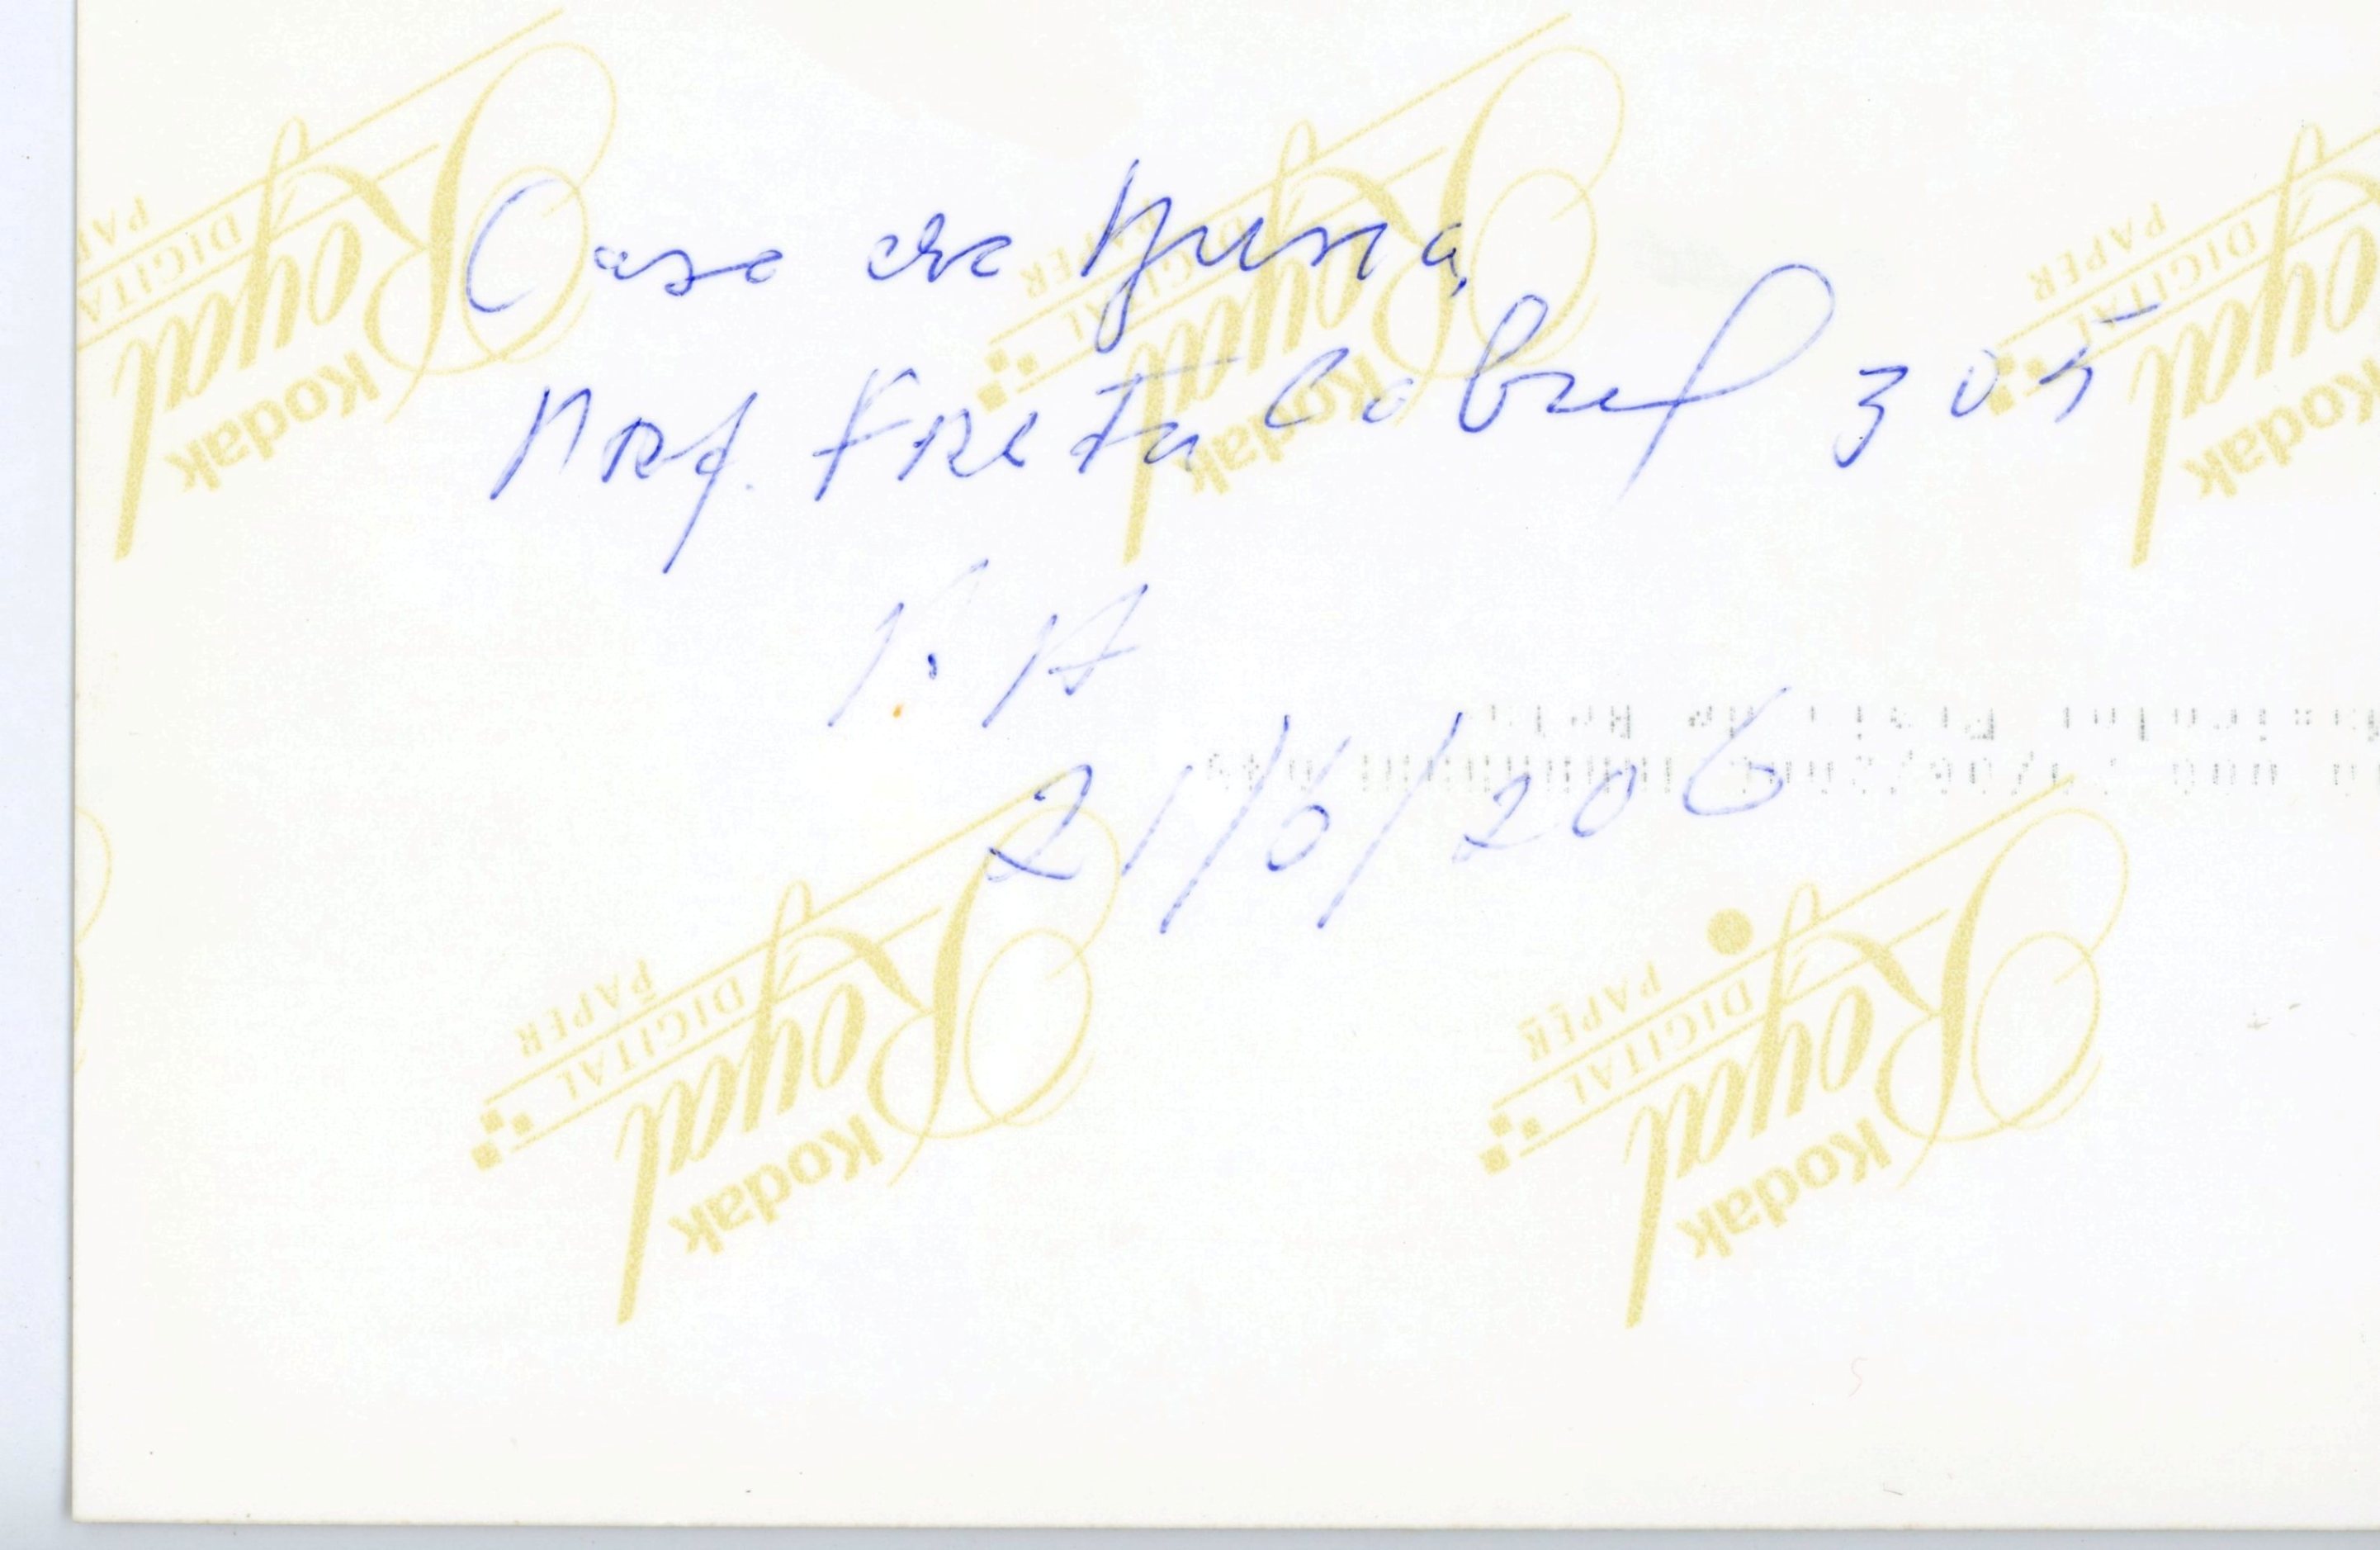 Casa da Yursa,
Prof. Freta Cabral 305
P. A
21/6/206
Kodak
Royal
DIGITAL
PAPER
Kodak
Royal
DIGITAL
PAPER
Kodak
Royal
DIGITAL
PAPER
Kodak
Royal
DIGITAL
PAPER
Kodak
Royal
DIGITAL
PAPER